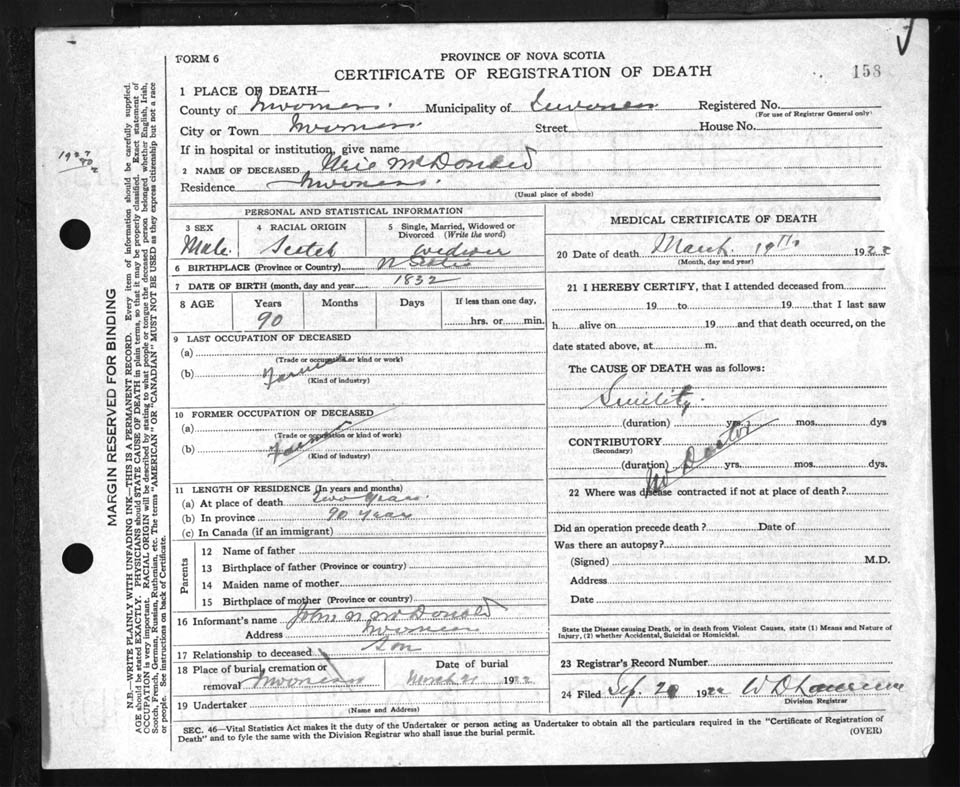 FORM 6
PROVINCE OF NOVA SCOTIA
CERTIFICATE OF REGISTRATION OF DEATH
158
1 PLACE OF DEATH—
County of Inverness. Municipality of Inverness Registered No.
(For use of Registrar General only)
City or Town Inverness Street House No.
If in hospital or institution, give name
2 NAME OF DECEASED McDonald
Residence Inverness.
(Usual place of abode)
PERSONAL AND STATISTICAL INFORMATION
3 SEX 4 RACIAL ORIGIN 5 Single, Married, Widowed or Divorced (Write the word)
Male. Scotch Widower
6 BIRTHPLACE (Province or Country) N Scotia
7 DATE OF BIRTH (month, day and year 1832
8 AGE Years Months Days If less than one day,
90 hrs. or min.
9 LAST OCCUPATION OF DECEASED
(a)
(Trade or occupation or kind or work)
(b) Farmer
(Kind of industry)
10 FORMER OCCUPATION OF DECEASED
(a)
(Trade or occupation or kind of work)
(b) Farmer
(Kind of industry)
11 LENGTH OF RESIDENCE (In years and months)
(a) At place of death two years.
(b) In province 90 years
(c) In Canada (if an immigrant)
Parents
12 Name of father
13 Birthplace of father (Province or country)
14 Maiden name of mother
15 Birthplace of mother (Province or country)
16 Informant's name John N McDonald
Address Inverness
17 Relationship to deceased Son
18 Place of burial, cremation or Date of burial
removal Inverness March 21 1922
19 Undertaker
(Name and Address)
MEDICAL CERTIFICATE OF DEATH
20 Date of death March 19th 1922
(Month, day and year)
21 I HEREBY CERTIFY, that I attended deceased from
19 to 19 that I last saw
h alive on 19 and that death occurred, on the
date stated above, at m.
The CAUSE OF DEATH was as follows:
Senility.
(duration) yrs. mos. dys
CONTRIBUTORY
(Secondary)
No Doctor
(duration) yrs. mos. dys.
22 Where was disease contracted if not at place of death?
Did an operation precede death? Date of
Was there an autopsy?
(Signed) M.D.
Address
Date
State the Disease causing Death, or in death from Violent Causes, state (1) Means and Nature of
Injury, (2) whether Accidental, Suicidal or Homicidal.
23 Registrar's Record Number
24 Filed Sep. 1922 W D
Division Registrar
SEC. 46—Vital Statistics Act makes it the duty of the Undertaker or person acting as Undertaker to obtain all the particulars required in the "Certificate of Registration of
Death" and to fyle the same with the Division Registrar who shall issue the burial permit.
(OVER)
MARGIN RESERVED FOR BINDING
N.B.—WRITE PLAINLY WITH UNFADING INK—THIS IS A PERMANENT RECORD. Every item of information should be carefully supplied.
AGE should be stated EXACTLY. PHYSICIANS should STATE CAUSE OF DEATH in plain terms, so that it may be properly classified. Exact statement of
OCCUPATION is very important. RACIAL ORIGIN will be described by stating to what people or tongue the deceased person belonged whether English, Irish,
Scotch, French, German, Russian, Ruthenian, etc. The terms "AMERICAN" OR "CANADIAN" MUST NOT BE USED as they express citizenship but not a race
or people. See instructions on back of Certificate.